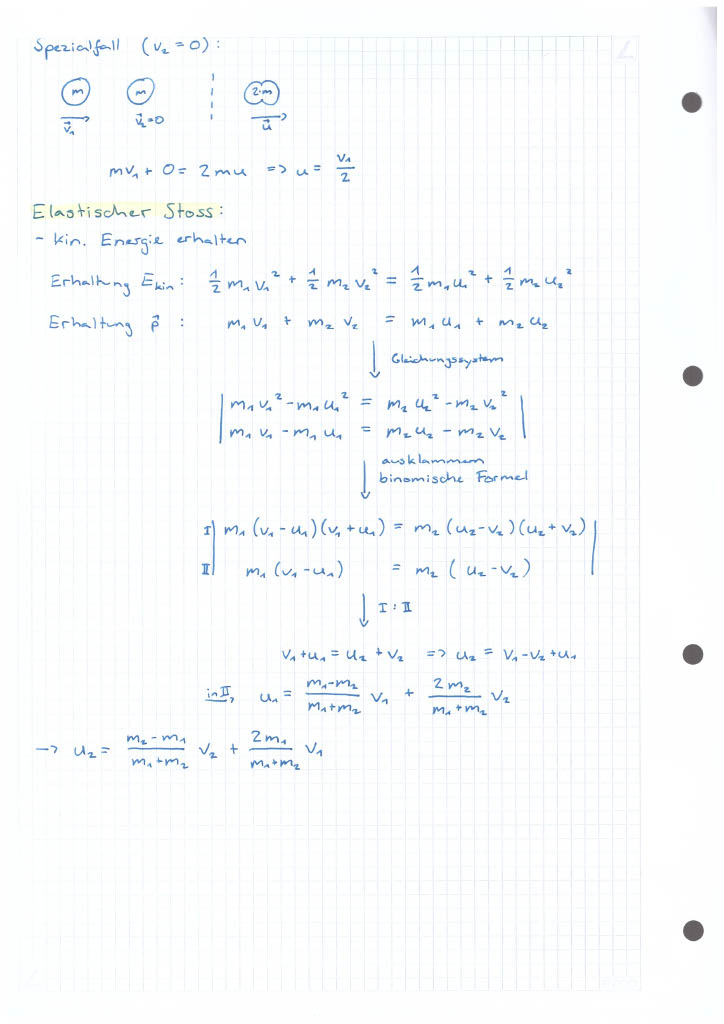 Spezialfall (v₂ = 0):
m m 2·m
v⃗₁ v⃗₂=0 u⃗
mv₁ + 0 = 2mu => u = v₁/2
Elastischer Stoss:
- kin. Energie erhalten
Erhaltung Ekin: 1/2 m₁v₁² + 1/2 m₂v₂² = 1/2 m₁u₁² + 1/2 m₂u₂²
Erhaltung p⃗ : m₁v₁ + m₂v₂ = m₁u₁ + m₂u₂
↓ Gleichungssystem
| m₁v₁² - m₁u₁² = m₂u₂² - m₂v₂² |
| m₁v₁ - m₁u₁ = m₂u₂ - m₂v₂ |
↓ ausklammern
binomische Formel
I | m₁(v₁-u₁)(v₁+u₁) = m₂(u₂-v₂)(u₂+v₂) |
II | m₁(v₁-u₁) = m₂(u₂-v₂) |
↓ I : II
v₁+u₁ = u₂+v₂ => u₂ = v₁-v₂+u₁
in II, u₁ = (m₁-m₂)/(m₁+m₂) v₁ + 2m₂/(m₁+m₂) v₂
-> u₂ = (m₂-m₁)/(m₁+m₂) v₂ + 2m₁/(m₁+m₂) v₁